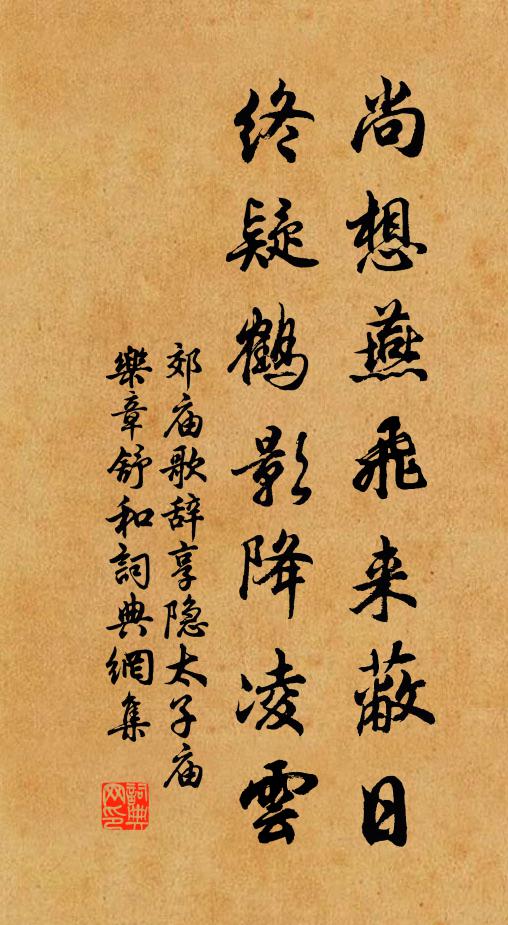 尚想燕飛来蔽日
終疑鶴影降凌雲
郊庙歌辞享隐太子庙
樂章舒和詞典網集
詞典网印